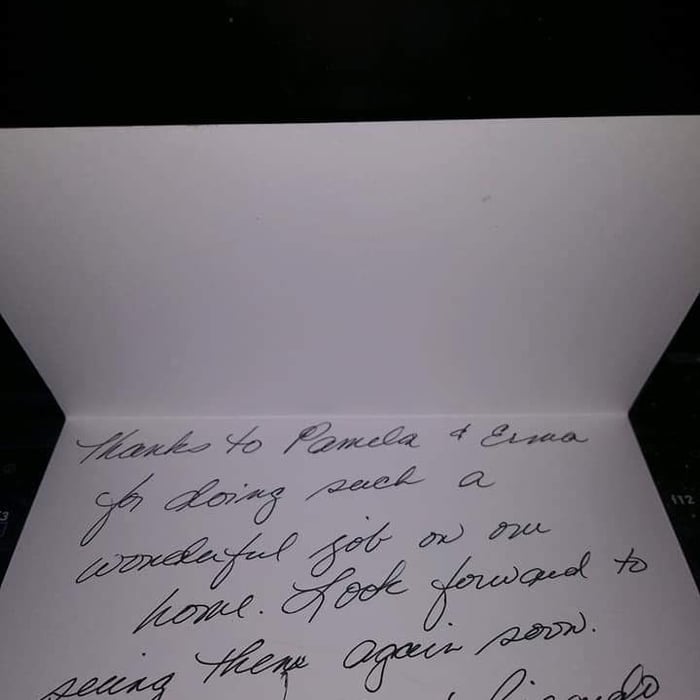 Thanks to Pamela & Erma
for doing such a
wonderful job on our
home. Look forward to
seeing them again soon.